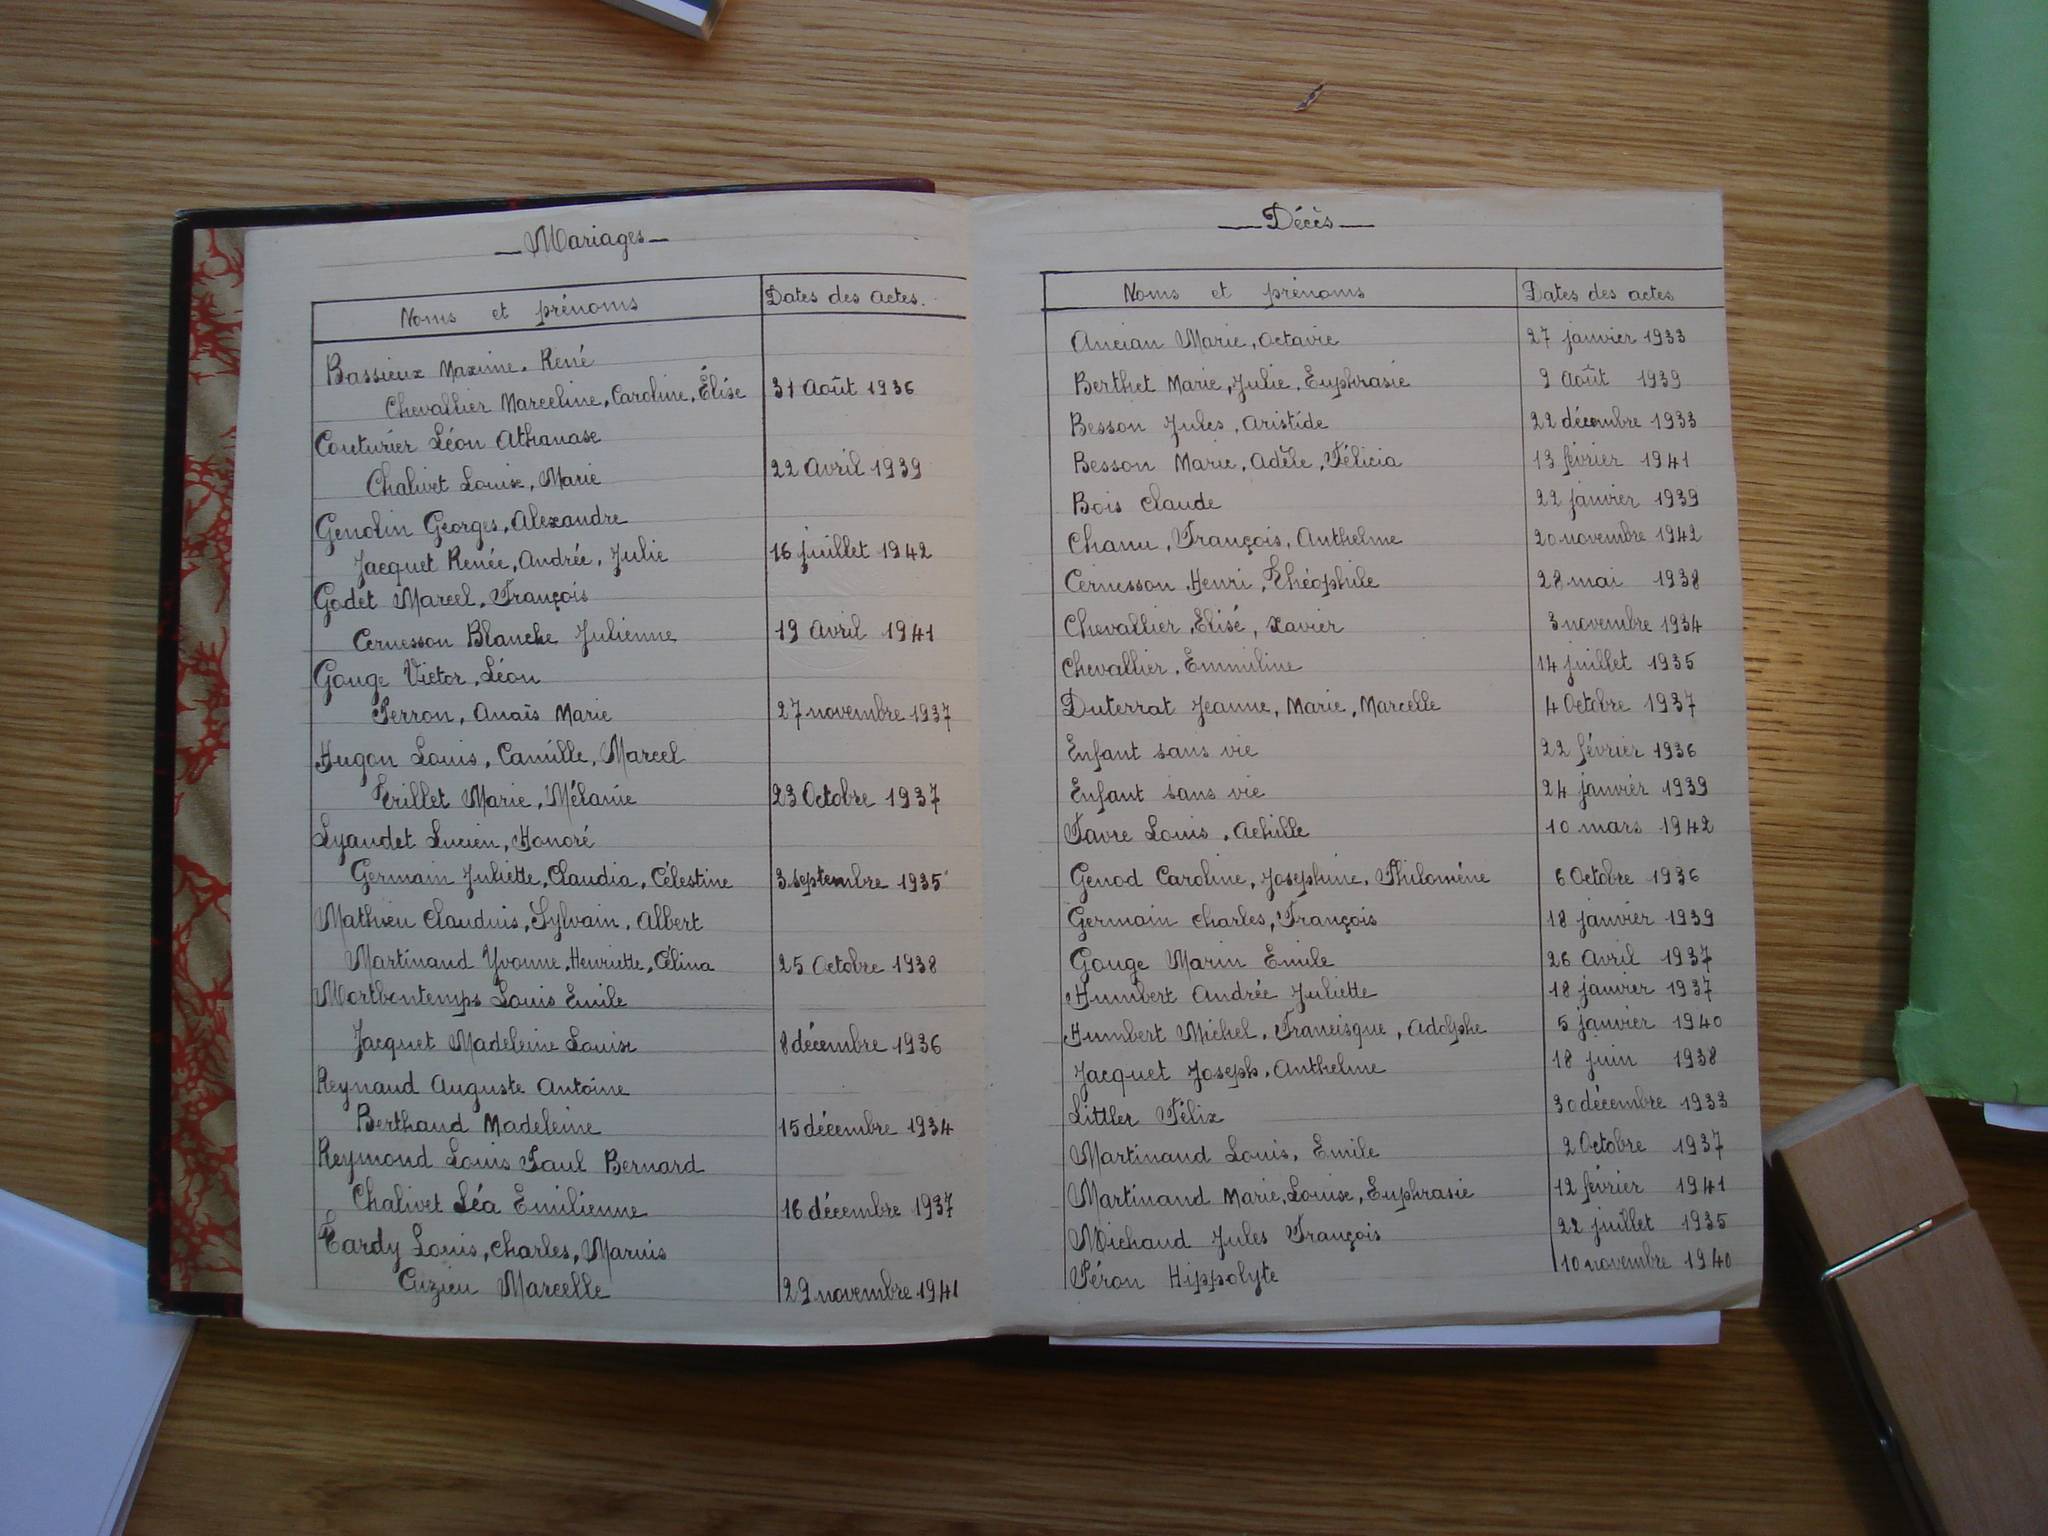 Mariages
Noms et prénoms Dates des actes.
Bassieux Maxime, René
Chevallier Marceline, Caroline, Élise 31 Août 1936
Couturier Léon Athanase
Chalivet Louise, Marie 22 Avril 1939
Genolin Georges, Alexandre
Jacquet Renée, Andrée, Julie 16 juillet 1942
Godet Marcel, François
Cernesson Blanche Julienne 19 Avril 1941
Gouge Victor, Léon
Perron, Anaïs Marie 27 novembre 1937
Hugon Louis, Camille, Marcel
Trillet Marie, Mélanie 23 Octobre 1937
Lyaudet Lucien, Honoré
Germain Juliette, Claudia, Célestine 3 septembre 1935
Mathieu Claudius, Sylvain, Albert
Martinand Yvonne, Henriette, Célina 25 Octobre 1938
Mortbontemps Louis Emile
Jacquet Madeleine Louise 8 décembre 1936
Reynaud Auguste Antoine
Berthaud Madeleine 15 décembre 1934
Reymond Louis Paul Bernard
Chalivet Léa Emilienne 16 décembre 1937
Tardy Louis, Charles, Marius
Cuzieu Marcelle 29 novembre 1941
Décès
Noms et prénoms Dates des actes
Ancian Marie, Octavie 27 janvier 1933
Berthet Marie, Julie, Euphrasie 9 Août 1939
Besson Jules, Aristide 22 décembre 1933
Besson Marie, Adèle, Félicia 13 février 1941
Bois Claude 22 janvier 1939
Chanu, François, Anthelme 20 novembre 1942
Cernesson, Henri, Théophile 28 mai 1938
Chevallier, Elisé, Xavier 3 novembre 1934
Chevallier, Emmiline 14 juillet 1935
Duterrat Jeanne, Marie, Marcelle 4 Octobre 1937
Enfant sans vie 22 février 1936
Enfant sans vie 24 janvier 1939
Favre Louis, Achille 10 mars 1942
Genod Caroline, Josephine, Philomène 6 Octobre 1936
Germain Charles, François 18 janvier 1939
Gouge Marin Emile 26 Avril 1937
Humbert Andrée Juliette 18 janvier 1937
Humbert Michel, Francisque, Adolphe 5 janvier 1940
Jacquet Joseph, Anthelme 18 juin 1938
Littler Félix 30 décembre 1933
Martinand Louis, Emile 2 Octobre 1937
Martinand Marie, Louise, Euphrasie 12 février 1941
Michaud Jules François 22 juillet 1935
Péron Hippolyte 10 novembre 1940